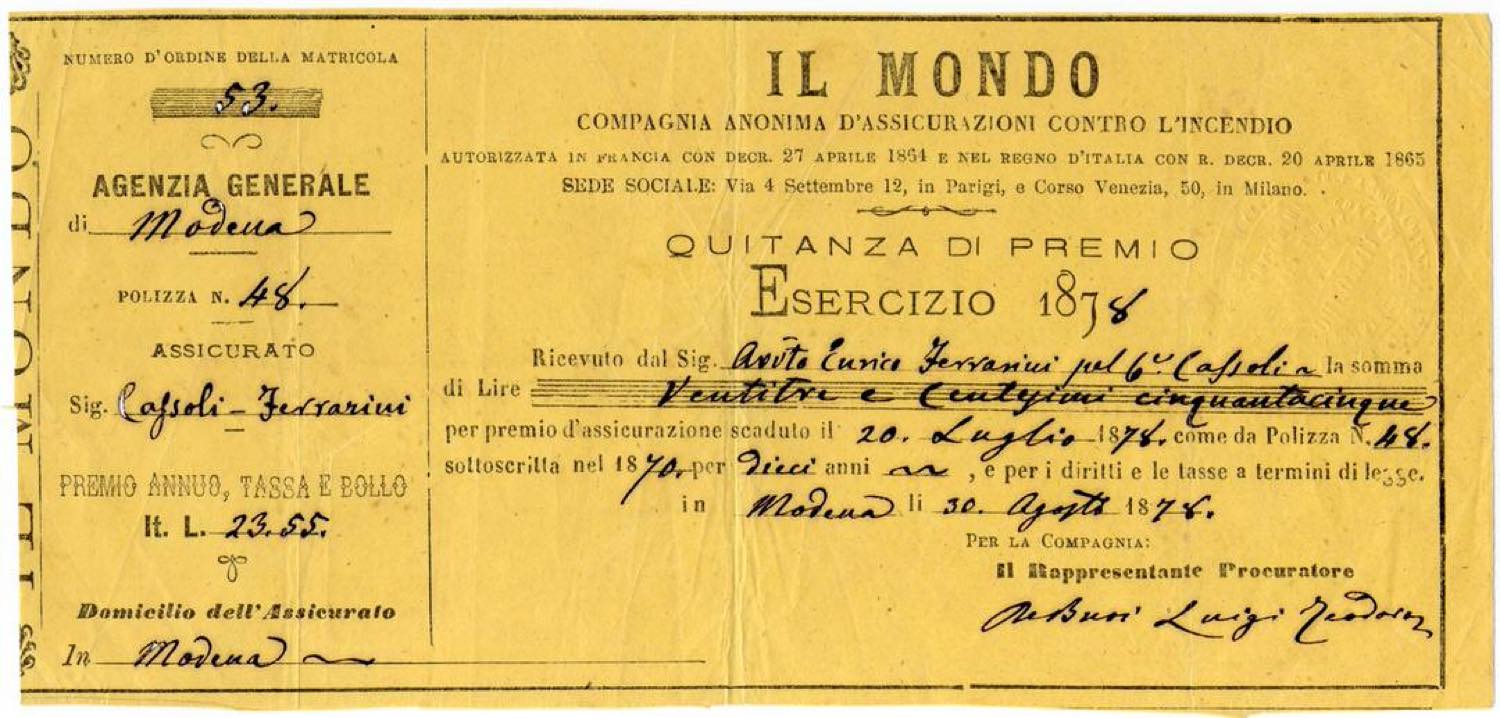 IL MONDO
NUMERO D'ORDINE DELLA MATRICOLA
53.
AGENZIA GENERALE
di Modena
POLIZZA N. 48.
ASSICURATO
Sig. Cassoli - Ferrarini
PREMIO ANNUO, TASSA E BOLLO
It. L. 23.55.
Domicilio dell'Assicurato
In Modena
IL MONDO
COMPAGNIA ANONIMA D'ASSICURAZIONI CONTRO L'INCENDIO
AUTORIZZATA IN FRANCIA CON DECR. 27 APRILE 1864 E NEL REGNO D'ITALIA CON R. DECR. 20 APRILE 1865
SEDE SOCIALE: Via 4 Settembre 12, in Parigi, e Corso Venezia, 50, in Milano.
QUITANZA DI PREMIO
ESERCIZIO 1878
Ricevuto dal Sig. Enrico Ferrarini pel Cassoli la somma
di Lire Ventitre e Centesimi cinquantacinque
per premio d'assicurazione scaduto il 20. Luglio 1878. come da Polizza N. 48.
sottoscritta nel 1870. per dieci anni , e per i diritti e le tasse a termini di legge.
in Modena li 30. Agosto 1878.
PER LA COMPAGNIA:
Il Rappresentante Procuratore
Luigi